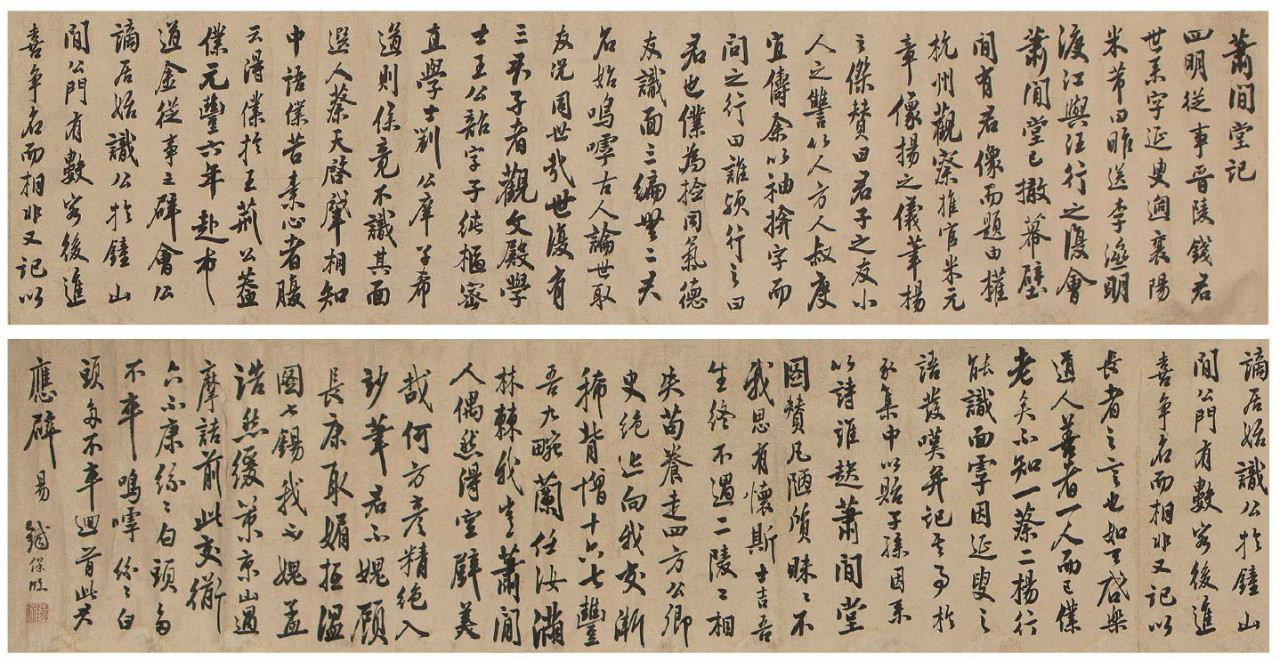 蕭閒堂記
四明從事晉陵錢君
世京字延叟過襄陽
米芾曰昨送李遜明
渡江與汪行之復會
蕭閒堂已撤幕壁
間有君像而題由權
杭州觀察推官米元
章像揚之儀筆楊
之傑贊曰君子之友小
人之讐以人方人叔度
宜儔余以袖揜字而
問之行曰誰歟行之曰
君也僕為捨同氣德
友識面之編無二夫
名始鳴嘑古人論世取
友況同世哉世復有
三君子者觀文殿學
士王公韶字子純樞密
直學士劉公庠字希
道則後竟不識其面
選人蔡天啓肇相知
中語僕苦素心者
云得僕於王荊公蓋
僕元豐六年赴希
道金從事之辟會公
謫居始識公於鍾山
間公門有數客後進
喜爭名而相非又記以
謫居始識公於鍾山
間公門有數客後進
喜爭名而相非又記以
長者之言也如天啓樂
道人善者一人而已僕
老矣不知一蔡二楊行
能識面乎因延叟之
語發嘆并記其事於
家集中以貽子孫因系
以詩誰題蕭閒堂
圖贊凡陋質昧昧不
我思有懷斯士吉吾
生終不遇二陵二相
失芻豢走四方公卿
史絕迹向我交漸
稀背憎十六七豐
吾九畹蘭任汝滿
林棘我生蕭閒
人偶然得空壁美
哉何方彥精絕入
妙筆君不媿顧
長康取媚狂溫
圖七錫我不媿孟
浩然緩策京山過
摩詰前此交御
六不康紛紛白頭多
不卒鳴嘑紛紛白
頭多不卒迴首此君
應辟 易
鐵保臨